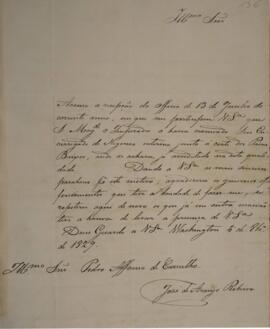 Illmo Snr
Accuso a recepção do officio de 13 de Junho do
corrente anno, em que me participa V.Sa que
S. Mage o Imperador o havia nomeado Seu En
carregado de Negocios interino junto á corte dos Paizes
Baixos, onde se achava já acreditado nesta quali
dade. Dando a V.Sa os meus sinceros
parabens por este motivo, agradeço
que teve a bondade de fazer-me, e
de novo os que já em outra occasião
tive a honra de levar á presença de V.Sa
Deus Guarde a V.Sa Washington 5 de
de 1829.
Illmo Snr Pedro Affonso de Carvalho.
José de Araujo Ribeiro